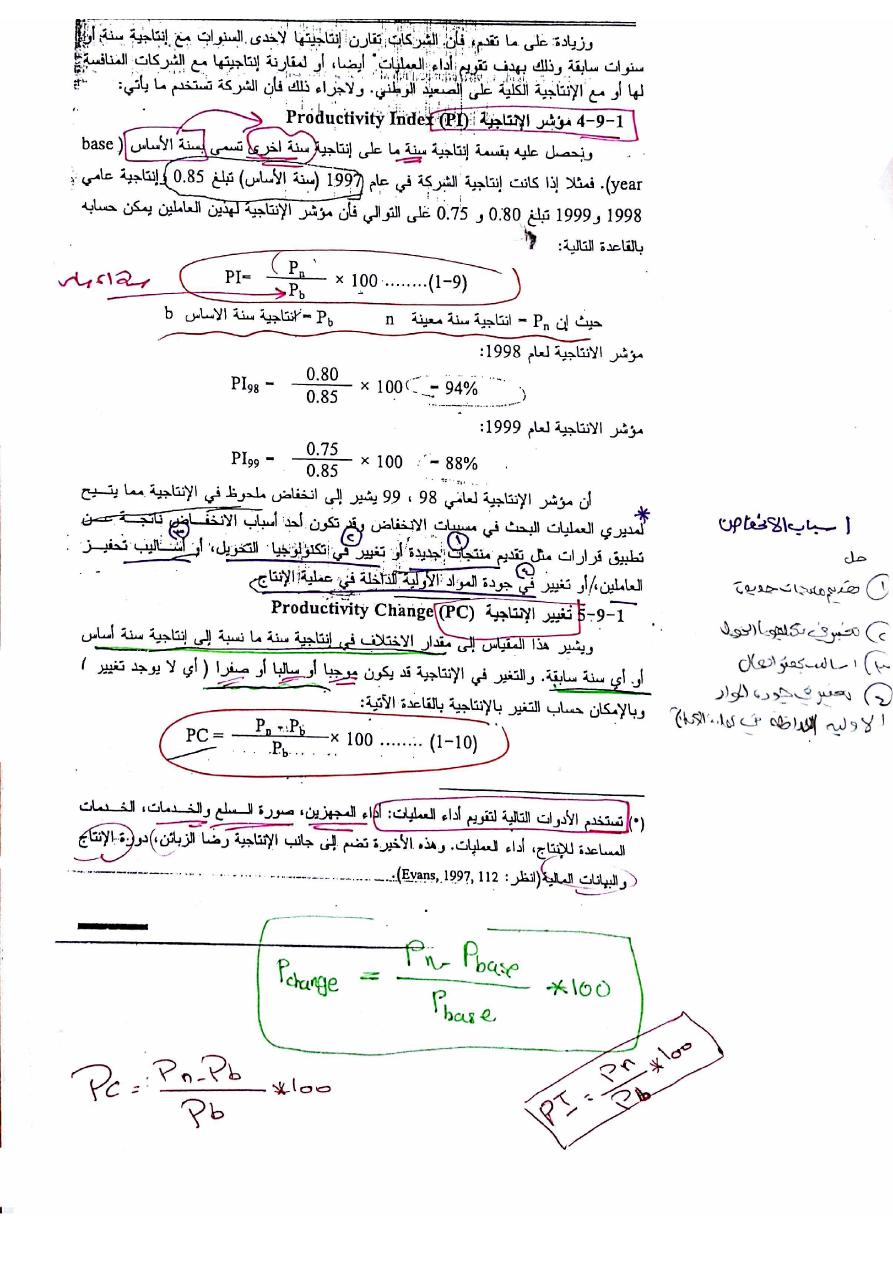 وزيادة على ما تقدم، فأن الشركات تقارن إنتاجيتها لاحدى السنوات مع إنتاجية سنة أو
سنوات سابقة وذلك بهدف تقويم أداء العمليات* أيضا، أو لمقارنة إنتاجيتها مع الشركات المنافسة
لها أو مع الإنتاجية الكلية على الصعيد الوطني. ولاجراء ذلك فأن الشركة تستخدم ما يأتي:
4-9-1 مؤشر الإنتاجية Productivity Index (PI)
ونحصل عليه بقسمة إنتاجية سنة ما على إنتاجية سنة اخرى تسمى بسنة الأساس ( base
year). فمثلا إذا كانت إنتاجية الشركة في عام 1997 (سنة الأساس) تبلغ 0.85 وإنتاجية عامي
1998 و1999 تبلغ 0.80 و 0.75 على التوالي فأن مؤشر الإنتاجية لهذين العاملين يمكن حسابه
بالقاعدة التالية:
PI= Pn / Pb × 100 ........(1-9)
حيث إن Pn = انتاجية سنة معينة n Pb = انتاجية سنة الاساس b
مؤشر الانتاجية لعام 1998:
PI98 = 0.80 / 0.85 × 100 = 94%
مؤشر الانتاجية لعام 1999:
PI99 = 0.75 / 0.85 × 100 = 88%
أن مؤشر الإنتاجية لعامي 98 ، 99 يشير إلى انخفاض ملحوظ في الإنتاجية مما يتيح
لمديري العمليات البحث في مسببات الانخفاض وقد تكون أحد أسباب الانخفاض ناتجة عن
تطبيق قرارات مثل تقديم منتجات جديدة أو تغيير في تكنولوجيا التحويل، أو أساليب تحفيز
العاملين، أو تغيير في جودة المواد الأولية الداخلة في عملية الإنتاج.
اسباب الانخفاض
1) تقديم منتجات جديدة
2) تغيير في تكنلوجيا التحويل
3) اساليب تحفيز العمال
4) تغيير في جودة المواد
الاولية الداخلة في
5-9-1 تغيير الإنتاجية Productivity Change (PC)
ويشير هذا المقياس إلى مقدار الاختلاف في إنتاجية سنة ما نسبة إلى إنتاجية سنة أساس
أو أي سنة سابقة. والتغير في الإنتاجية قد يكون موجبا أو سالبا أو صفرا ( أي لا يوجد تغيير )
وبالإمكان حساب التغير بالإنتاجية بالقاعدة الآتية:
PC = Pn - Pb / Pb × 100 ........ (1-10)
(*) تستخدم الأدوات التالية لتقويم أداء العمليات: أداء المجهزين، صورة السلع والخدمات، الخدمات
المساعدة للإنتاج، أداء العمليات. وهذه الأخيرة تضم إلى جانب الإنتاجية رضا الزبائن، دورة الإنتاج
والبيانات المالية (انظر: Evans, 1997, 112).
Pchange = Pn - Pbase / Pbase *100
PC = Pn - Pb / Pb *100
PI = Pn / Pb *100